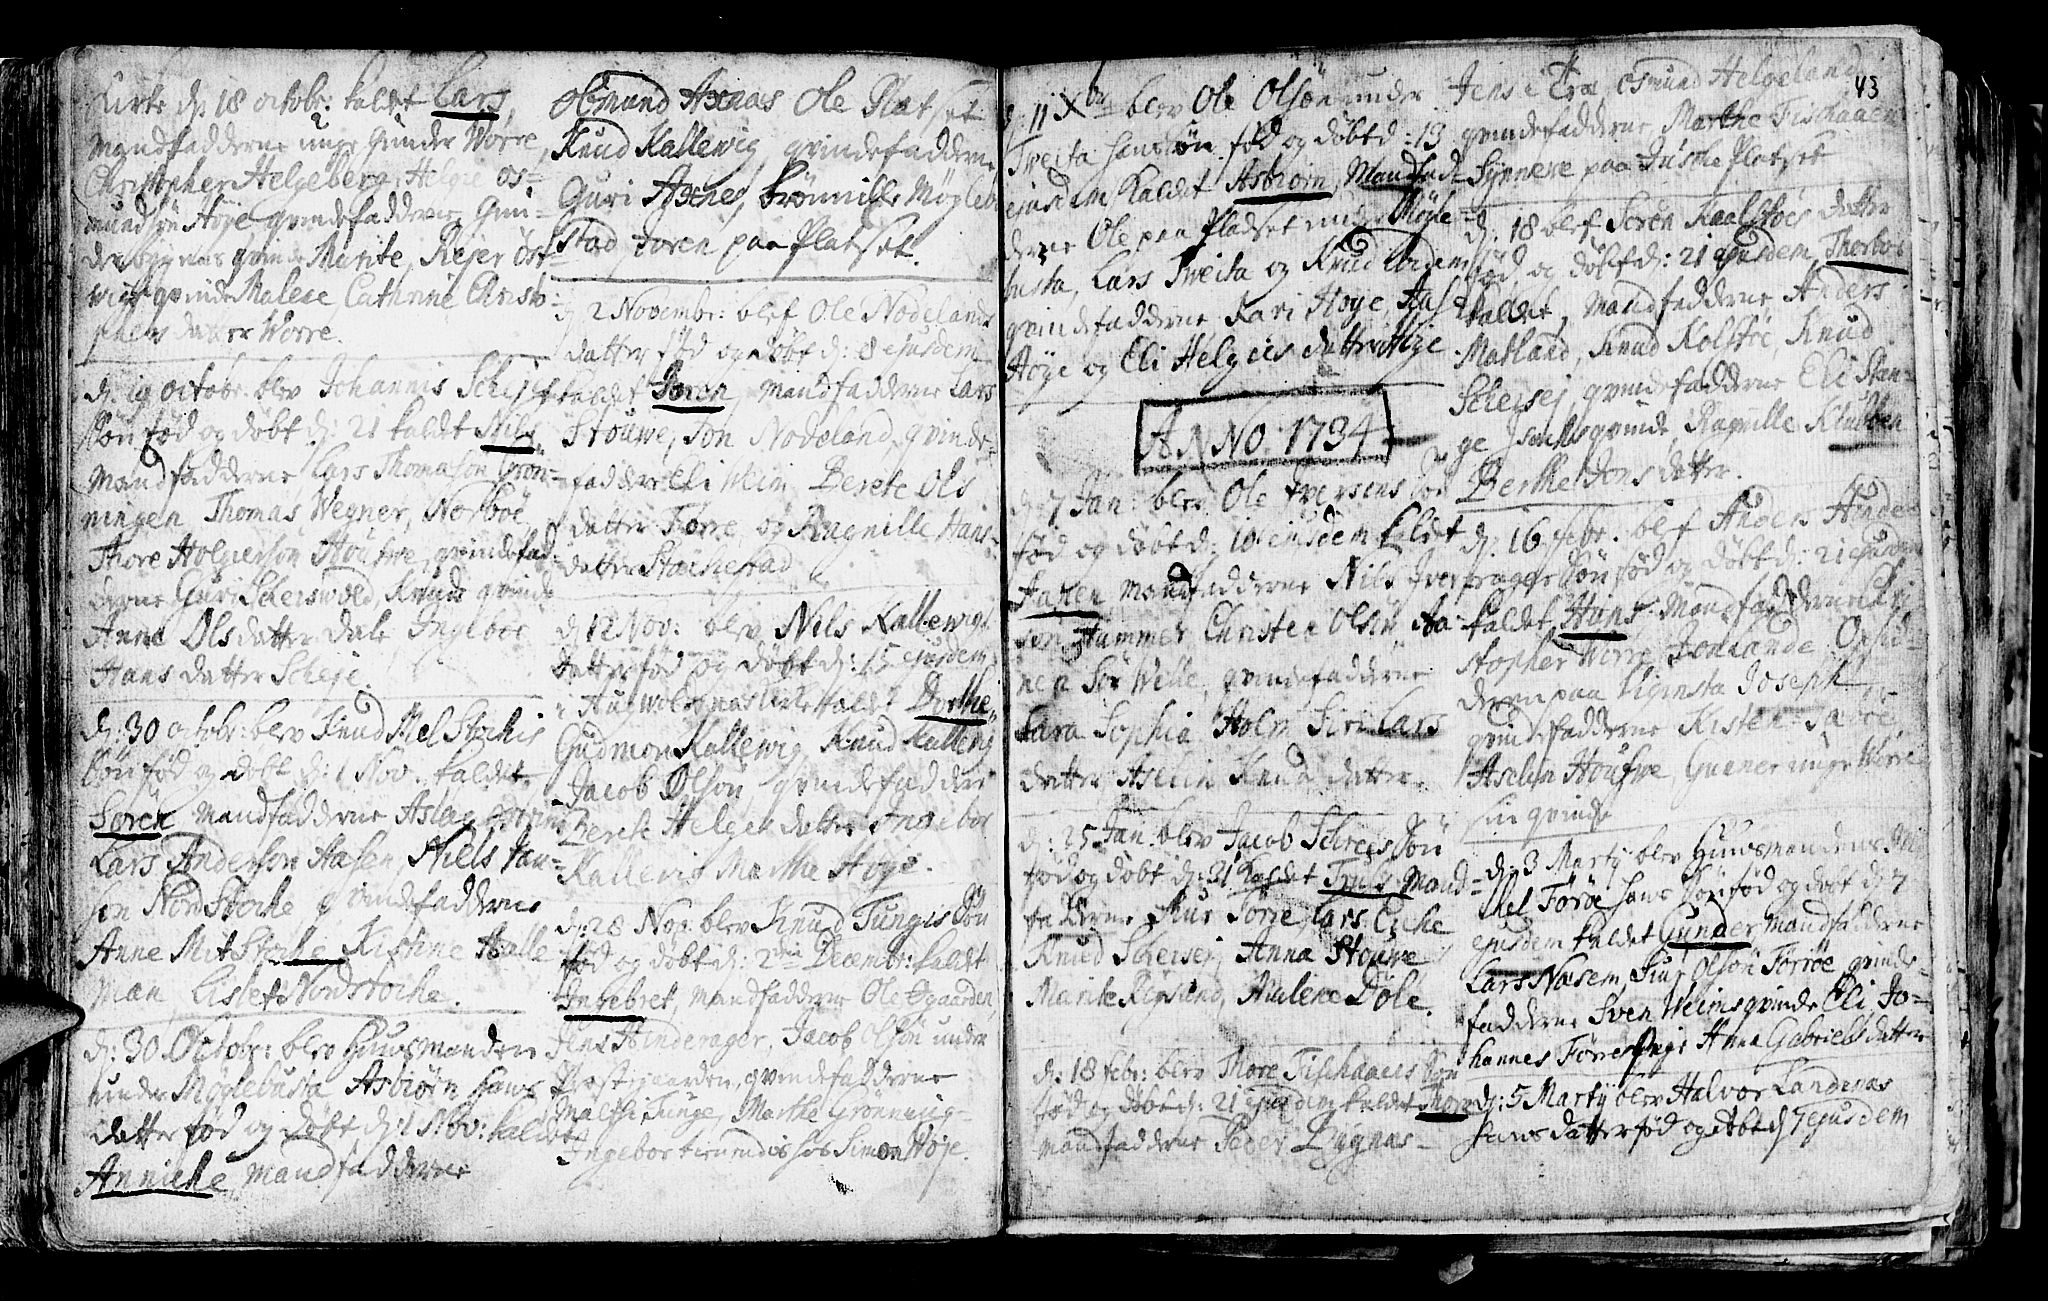 Kirke d: 18 octobr: kaldet Lars,
Mandfadderne unge Gunder Worre,
Christopher Helgeberg, Helge Os=
mundsøn Høye qvindefadderne Gun=
der Bygnes qvinde Marite, Rejer Øst
wigs qvinde Malene, Cathrine Christo
phers datter Worre.
d: 19 octobr: blev Johannis Scheies
søn fød og døbt d: 21 kaldet Nils,
Mandfadderne Lars Thomasøn Grøn=
ningen, Thomas Wegner, Norbøe,
Thore Holgersøn Houske, qvindefad=
derne Guri Scherswold, Knuds qvinde
Anna Olsdatter Dale Ingebor
Hans datter Scheje.
d: 30 octobr: blev Knud Mel Stochis
søn fød og døbt d: 1 Nov. kaldet
Søren Mandfadderne Aslag
Lars Andersøn Aasen, Niels Jan=
sen Nord Stocke qvindefadderne
Anne Mit Stocke Kistine Halle
man, Lisbet Nordstocke.
d: 30 Octobr: blev Huusmanden
under Møglebusta Asbiørn Hans
datter fød og døbt d: 1 Nov: kaldet
Anniche, Mandfadderne
Osmund Axnas Ole Platset
Knud Kallewig, qvindefadderne
Guri Axenes, Brønnille Mögleb
stad Joren paa Platset.
d: 2 Novembr: blef Ole Nodelands
datter fød og døbt d: 8 ejusdem
kaldet Joren, Mandfadderne Lars
Stouwe, Jon Nodeland, qvinde=
faddere Eli Wim Berete Ols
datter Førre, og Ragnille Hans=
datter Stochestad
d: 12 Nov: blev Nils Kallewigs
datter fød og døbt d: 15 ejusdem
i Augwoldsnas Kirke kaldt Dorthe,,
Gudmon Kallewig Knud Kallewig
Jacob Olson qvindefaddere
Berete Helges datter Ingebor
Kallevis Marthe Høye.
d: 28 Nov: blev Knud Tunges søn
fød og døbt d: 2den Decembr: kaldet
Ingebret, Mandfadderne Ole Øgaarden,
Jens Hinderager, Jacob Olsøn under
Præstgaarden, qvindefadderne
Malthi Tunge, Marthe Grønning=
Ingebor tienendis hos Simon Høje.
43
d: 11 Xbr blev Ole Olsøn under
Tweita hans søn fød og døbt d: 13
ejusdem kaldet Asbiørn, Mandfad=
derne Ole paa Pladset under Møgle=
busta, Lars Tweita og Knud ibidem
qvindefadderne Kari Høye, Aase
Høye og Eli Helgies datter Høye
ANNO: 1734
d: 7 Jan: blev Ole Iversens søn
fød og døbt d: 10 ejusdem kaldet
Fasten Mandfadderne Nils Iver
sen Hammer Christen Olsøn Aa=
nen Sør Welle, qvindefadderne
Sara Sophia Holm Siri Lars
datter Aselin Knuds datter.
d: 25 Jan: blev Jacob Schrees søn
fød og døbt d: 31 kaldet Truls Mand=
fadderne Siur Førre, Lars Eicke
Knud Schersej, Anna Stouwe
Marite Røgsund, Malene Døle.
d: 18 febr: blev Thore Fischaaes søn
fød og døbt d: 21 ejusdem kaldet Thore
Mandfadderne Peder Bygnas=
Jens i Eræ, Osmund Helgeland
qvindefadderne, Marthe Fischaaen
Synneve paa Fusche Platset
d: 18 blef Søren Kaalstøes datter
fød og døbt d: 21 ejusdem Thorbor
kaldet, Mandfadderne Anders
Matland, Knud Kolstøe, Knud
Schersej, qvindefadderne Eli Stan=
ge Isachs qvinde, Ragnille Klubben
Berthe Jons datter.
d: 16 febr: blef Anders Hinder
ager søn fød og døbt d: 21 ejusdem
kaldet Hans: Mandfadderne Chri
stopher Worre Jomaande Opsid=
deren paa Joseph
qvindefadderne Kisten Førre,
Aselin Houske Gunner unge Worre
sin qvinde
d: 3 Marty blev Huusmandens Mi
chel Førøe hans søn fød og døbt d: 7
ejusdem kaldet Gunder Mandfadderne
Lars Næsem, Siur Olsøn Førrøe, qvinde=
fadderne Sven Weims qvinde Eli, Jo=
hannes Førres Anna Gabriels datter
d: 5 Marty blev Halvor Landenas
hans datter fød og døbt d 7 ejusdem